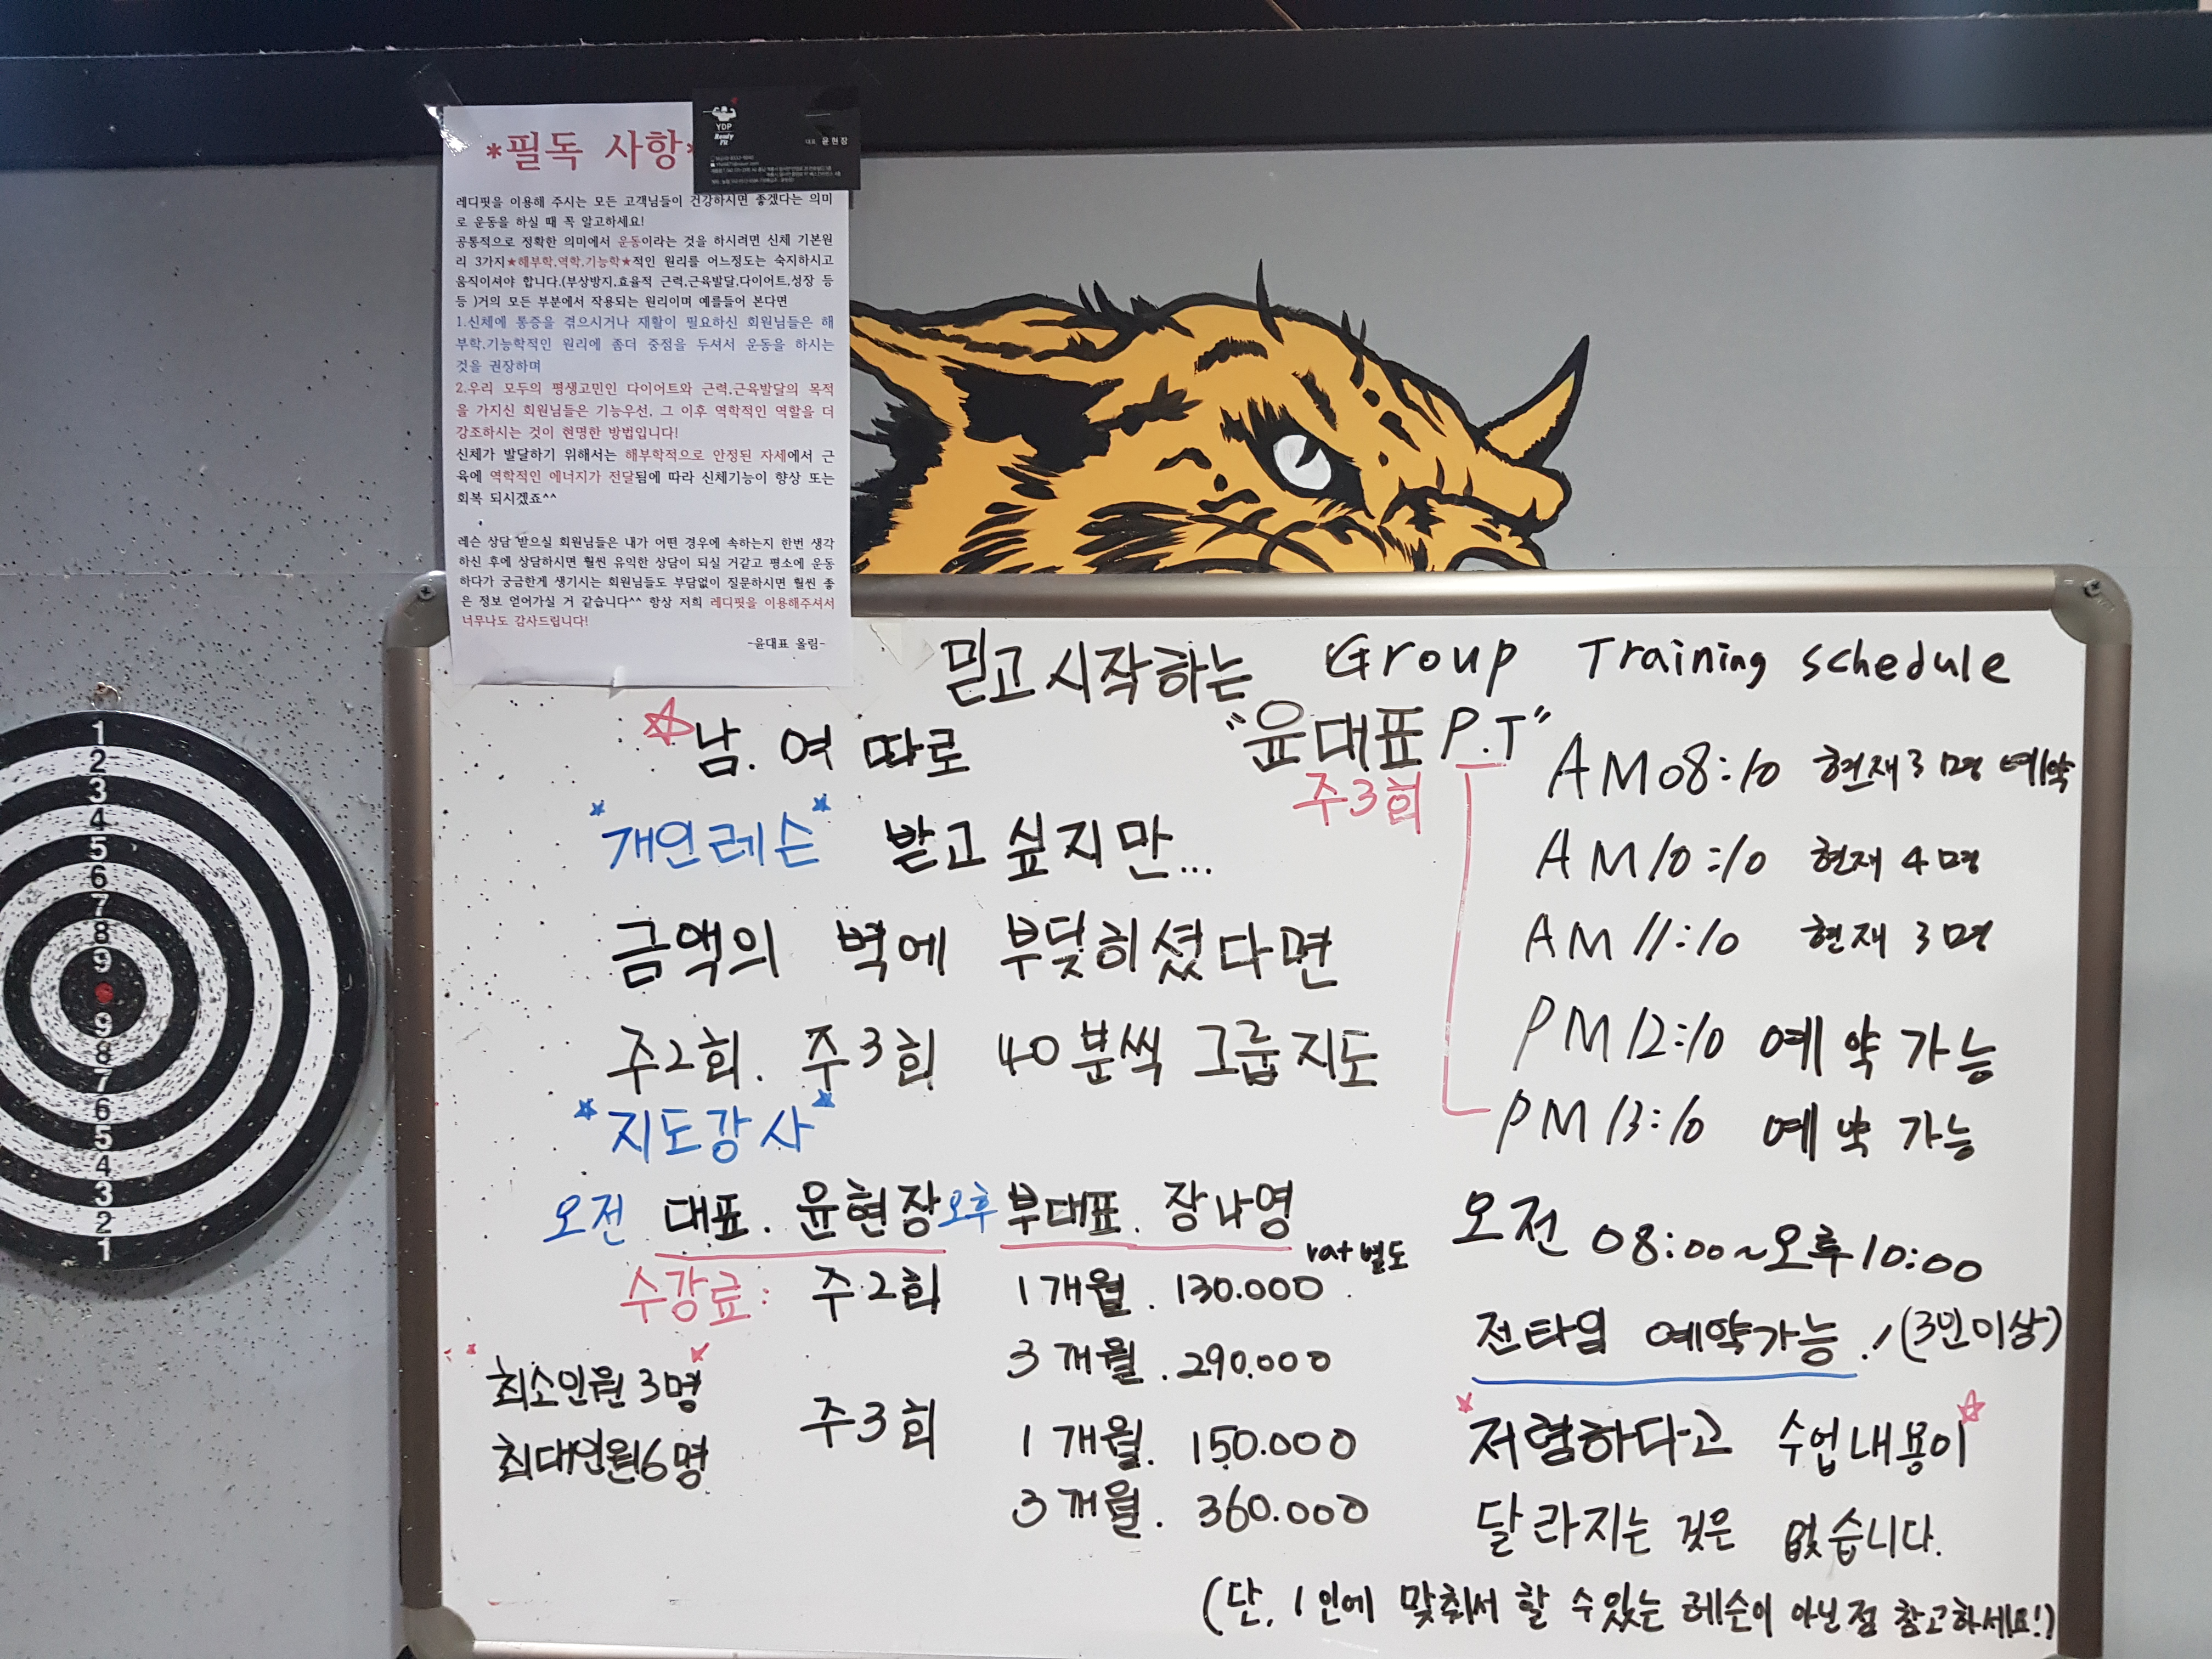 *필독 사항*
YDP
Ready
Fit
대표 윤현장
레디핏을 이용해 주시는 모든 고객님들이 건강하시면 좋겠다는 의미
로 운동을 하실 때 꼭 알고하세요!
공통적으로 정확한 의미에서 운동이라는 것을 하시려면 신체 기본원
리 3가지★해부학,역학,기능학★적인 원리를 어느정도는 숙지하시고
움직이셔야 합니다.(부상방지,효율적 근력,근육발달,다이어트,성장 등
등 )거의 모든 부분에서 작용되는 원리이며 예를들어 본다면
1.신체에 통증을 겪으시거나 재활이 필요하신 회원님들은 해
부학,기능학적인 원리에 좀더 중점을 두셔서 운동을 하시는
것을 권장하며
2.우리 모두의 평생고민인 다이어트와 근력,근육발달의 목적
을 가지신 회원님들은 기능우선, 그 이후 역학적인 역할을 더
강조하시는 것이 현명한 방법입니다!
신체가 발달하기 위해서는 해부학적으로 안정된 자세에서 근
육에 역학적인 에너지가 전달됨에 따라 신체기능이 향상 또는
회복 되시겠죠^^
레슨 상담 받으실 회원님들은 내가 어떤 경우에 속하는지 한번 생각
하신 후에 상담하시면 훨씬 유익한 상담이 되실 거같고 평소에 운동
하다가 궁금한게 생기시는 회원님들도 부담없이 질문하시면 훨씬 좋
은 정보 얻어가실 거 같습니다^^ 항상 저희 레디핏을 이용해주셔서
너무나도 감사드립니다!
-윤대표 올림-
믿고 시작하는 Group Training schedule
"윤대표 P.T"
주3회
☆남. 여 따로
*개인레슨* 받고 싶지만...
금액의 벽에 부딪히셨다면
주2회. 주3회 40분씩 그룹지도
*지도강사*
오전 대표. 윤현장 오후 부대표. 장나영
vat 별도
수강료: 주2회 1개월. 130.000
3개월. 290.000
주3회 1개월. 150.000
3개월. 360.000
*최소인원 3명*
최대인원 6명
AM 08:10 현재 3명 예약
AM 10:10 현재 4명
AM 11:10 현재 3명
PM 12:10 예약 가능
PM 13:10 예약 가능
오전 08:00~오후 10:00
전타임 예약가능! (3인이상)
*저렴하다고 수업내용이☆
달라지는 것은 없습니다.
(단, 1인에 맞춰서 할 수있는 레슨이 아닌점 참고하세요!)
1
2
3
4
5
6
7
8
9
9
8
7
6
5
4
3
2
1